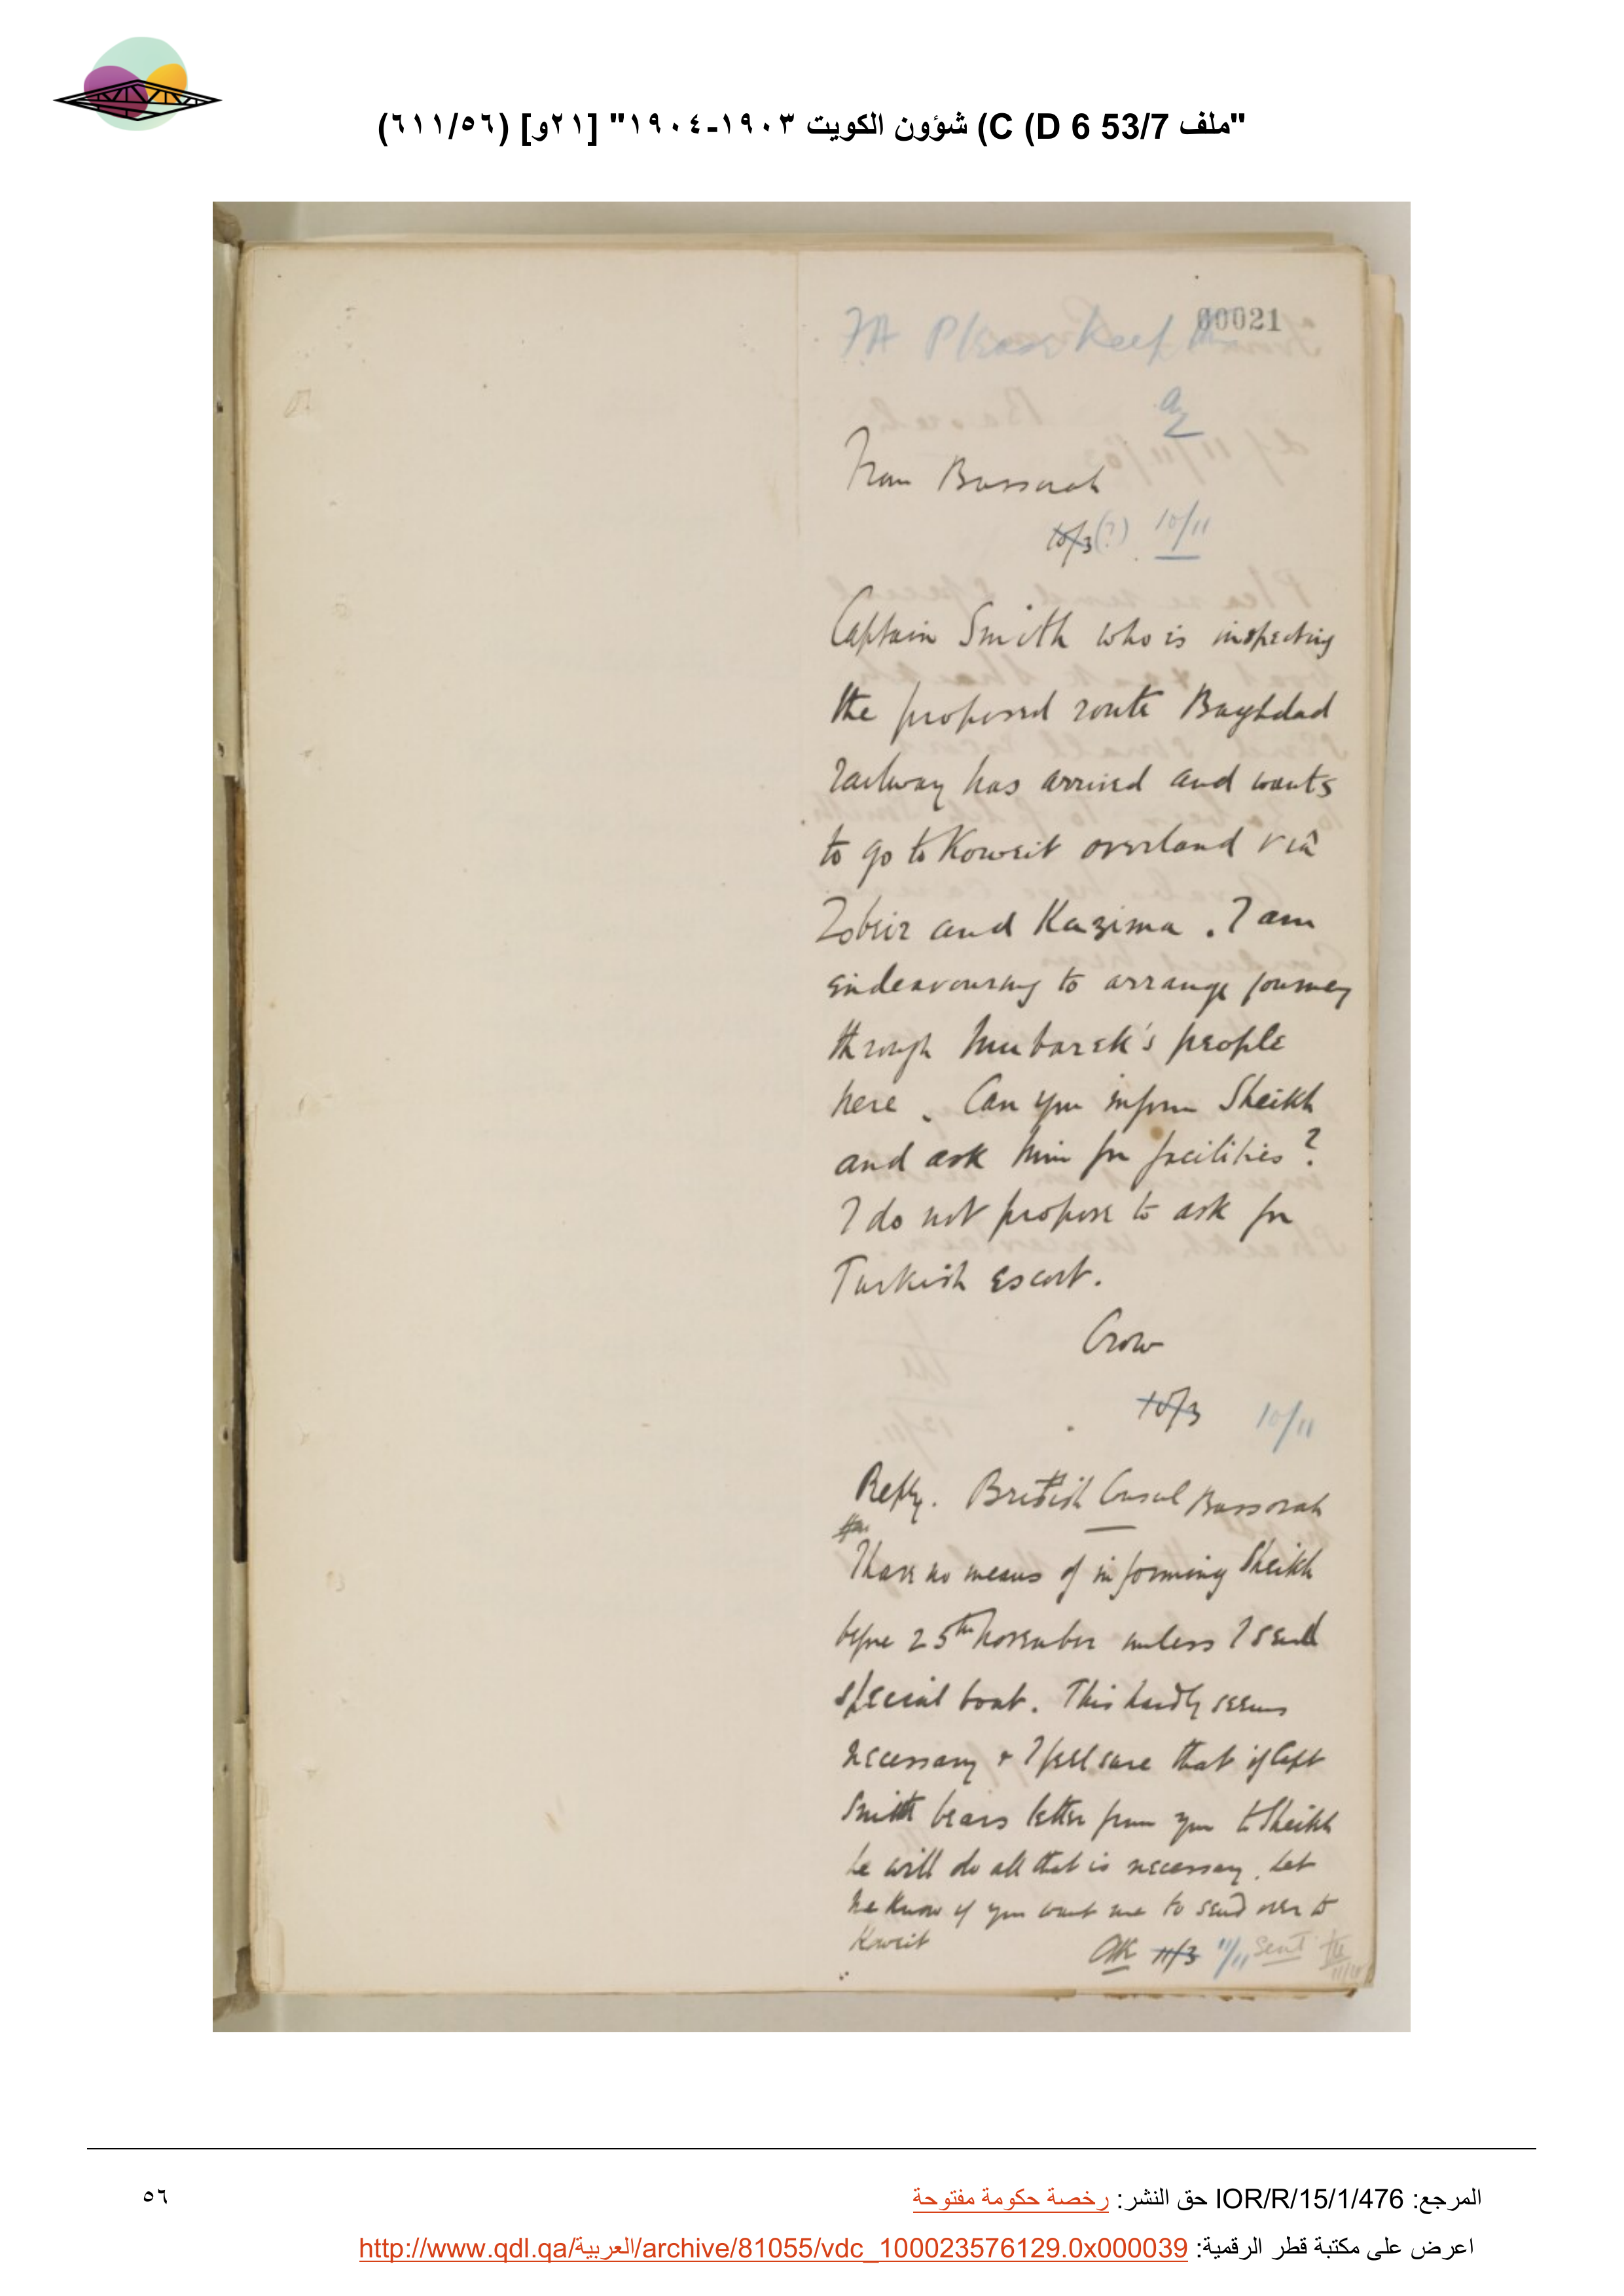 "ملف 53/7 C (D 6) شؤون الكويت ١٩٠٣-١٩٠٤" [٢١و] (٥٦/٦١١)
00021
FA Please keep
From Bussorah
10/3 (?) 10/11
Captain Smith who is inspecting
the proposed route Baghdad
railway has arrived and wants
to go to Koweit overland viâ
Zobeir and Kazima. I am
endeavouring to arrange journey
through Mubarek's people
here. Can you inform Sheikh
and ask him for facilities?
I do not propose to ask for
Turkish escort.
Crow
10/3 10/11
Reply. British Consul Bussorah
I have no means of informing Sheikh
before 25th November unless I send
special boat. This hardly seems
necessary & I feel sure that if Capt
Smith bears letter from you to Sheikh
he will do all that is necessary. Let
me know if you want me to send over to
Koweit
11/3 11/11 sent
11/11
المرجع: IOR/R/15/1/476 حق النشر: رخصة حكومة مفتوحة
٥٦
اعرض على مكتبة قطر الرقمية: http://www.qdl.qa/العربية/archive/81055/vdc_100023576129.0x000039